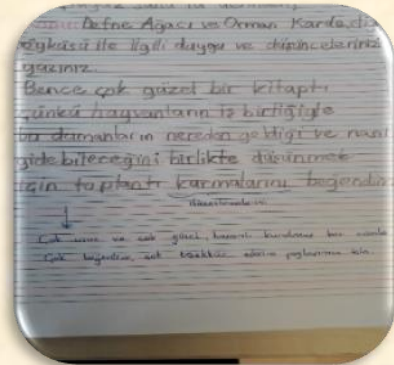 Defne Ağacı ve Orman Kardeşliği
öyküsü ile ilgili duygu ve düşünceleriniz
yazınız.
Bence çok güzel bir kitaptı
çünkü hayvanların iş birliğiyle
bu dumanların nereden geldiği ve nasıl
gidebileceğini birlikte düşünmek
için toplantı kurmalarını beğendim
Çok uzun ve çok güzel, başarılı kurulmuş bir cümle
Çok beğendim, çok teşekkür ederim paylaşımın için.